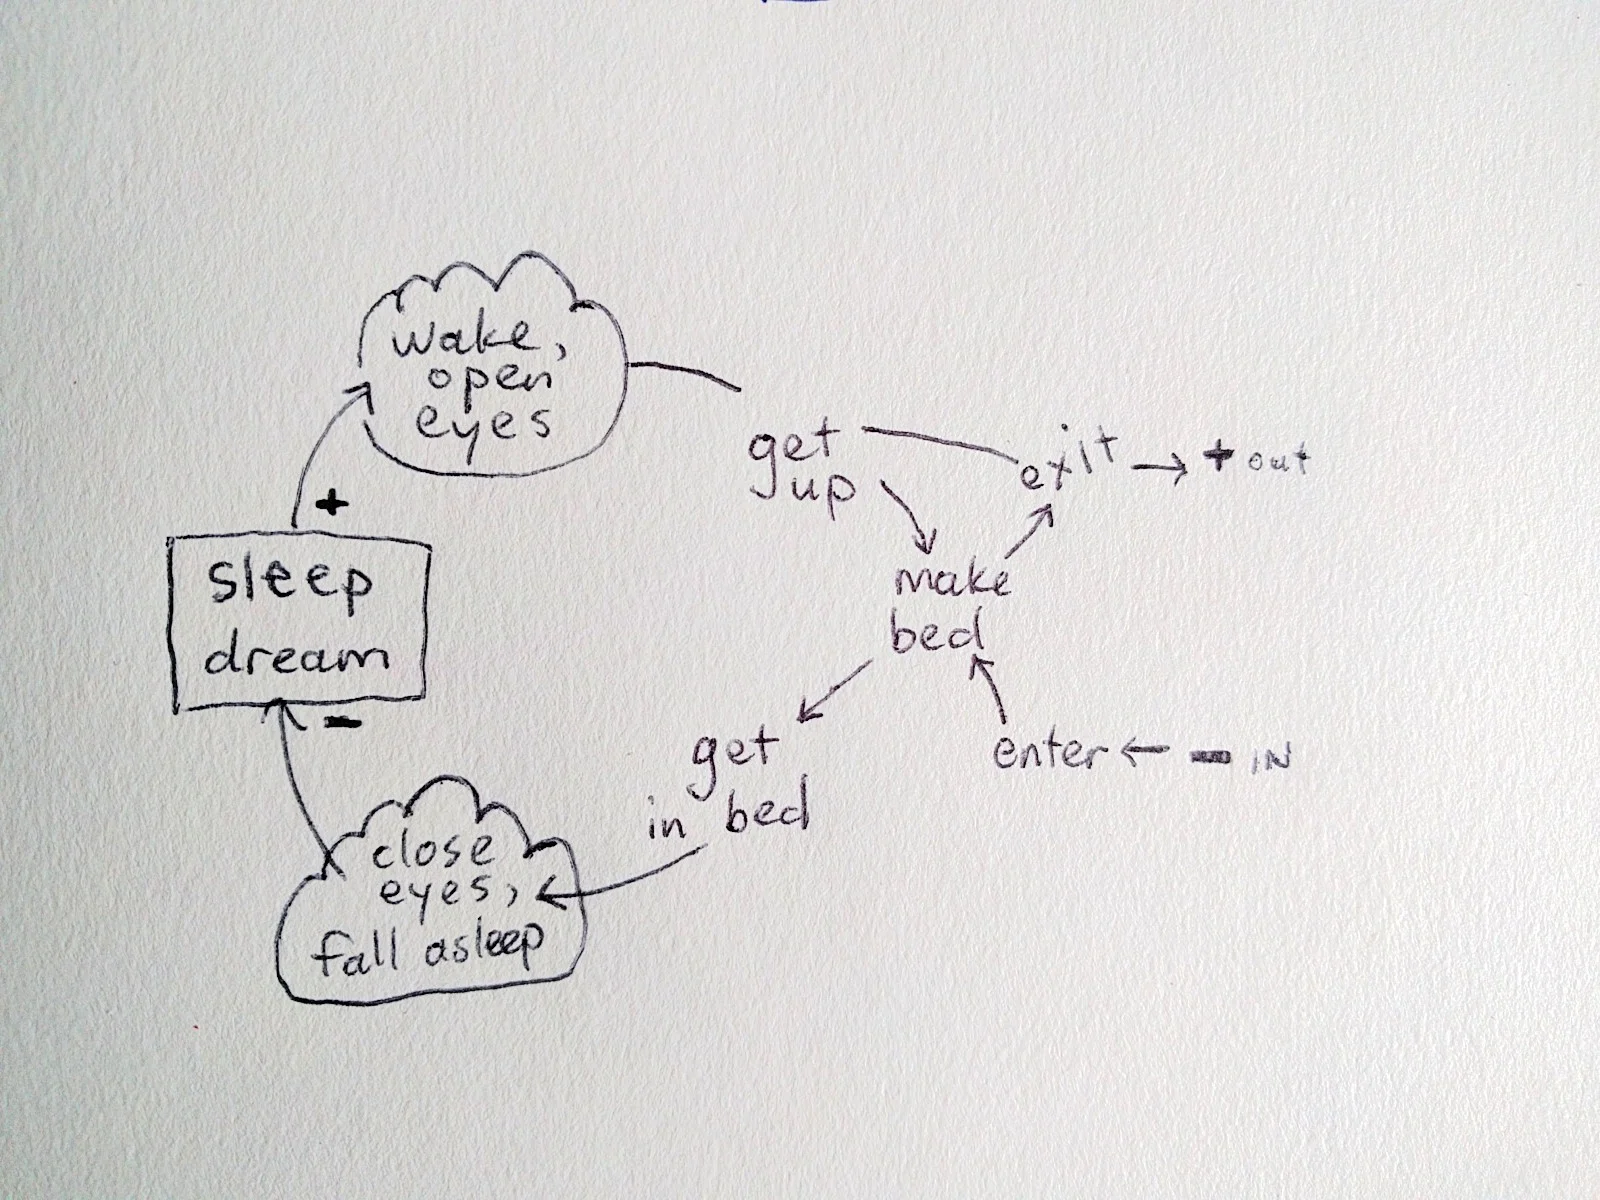 wake,
open
eyes
get
up
exit → + out
+
sleep
dream
make
bed
-
get
in bed
enter ← - IN
close
eyes,
fall asleep